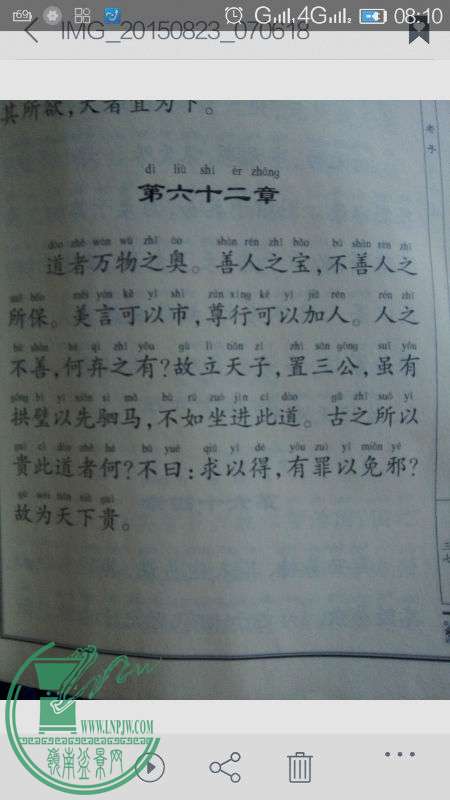 69 G 4G 08:10
IMG_20150823_070618
其所欲,大者宜为下。
老子
dì liù shí èr zhāng
第六十二章
dào zhě wàn wù zhī ào shàn rén zhī bǎo bú shàn rén zhī
道者万物之奥。善人之宝,不善人之
suǒ bǎo měi yán kě yǐ shì zūn xíng kě yǐ jiā rén rén zhī
所保。美言可以市,尊行可以加人。人之
bú shàn hé qì zhī yǒu gù lì tiān zǐ zhì sān gōng suī yǒu
不善,何弃之有?故立天子,置三公,虽有
gǒng bì yǐ xiān sì mǎ bù rú zuò jìn cǐ dào gǔ zhī suǒ yǐ
拱璧以先驷马,不如坐进此道。古之所以
guì cǐ dào zhě hé bù yuē qiú yǐ dé yǒu zuì yǐ miǎn yé
贵此道者何?不曰:求以得,有罪以免邪?
gù wéi tiān xià guì
故为天下贵。
三七
WWW.LNPJW.COM
岭南盆景网